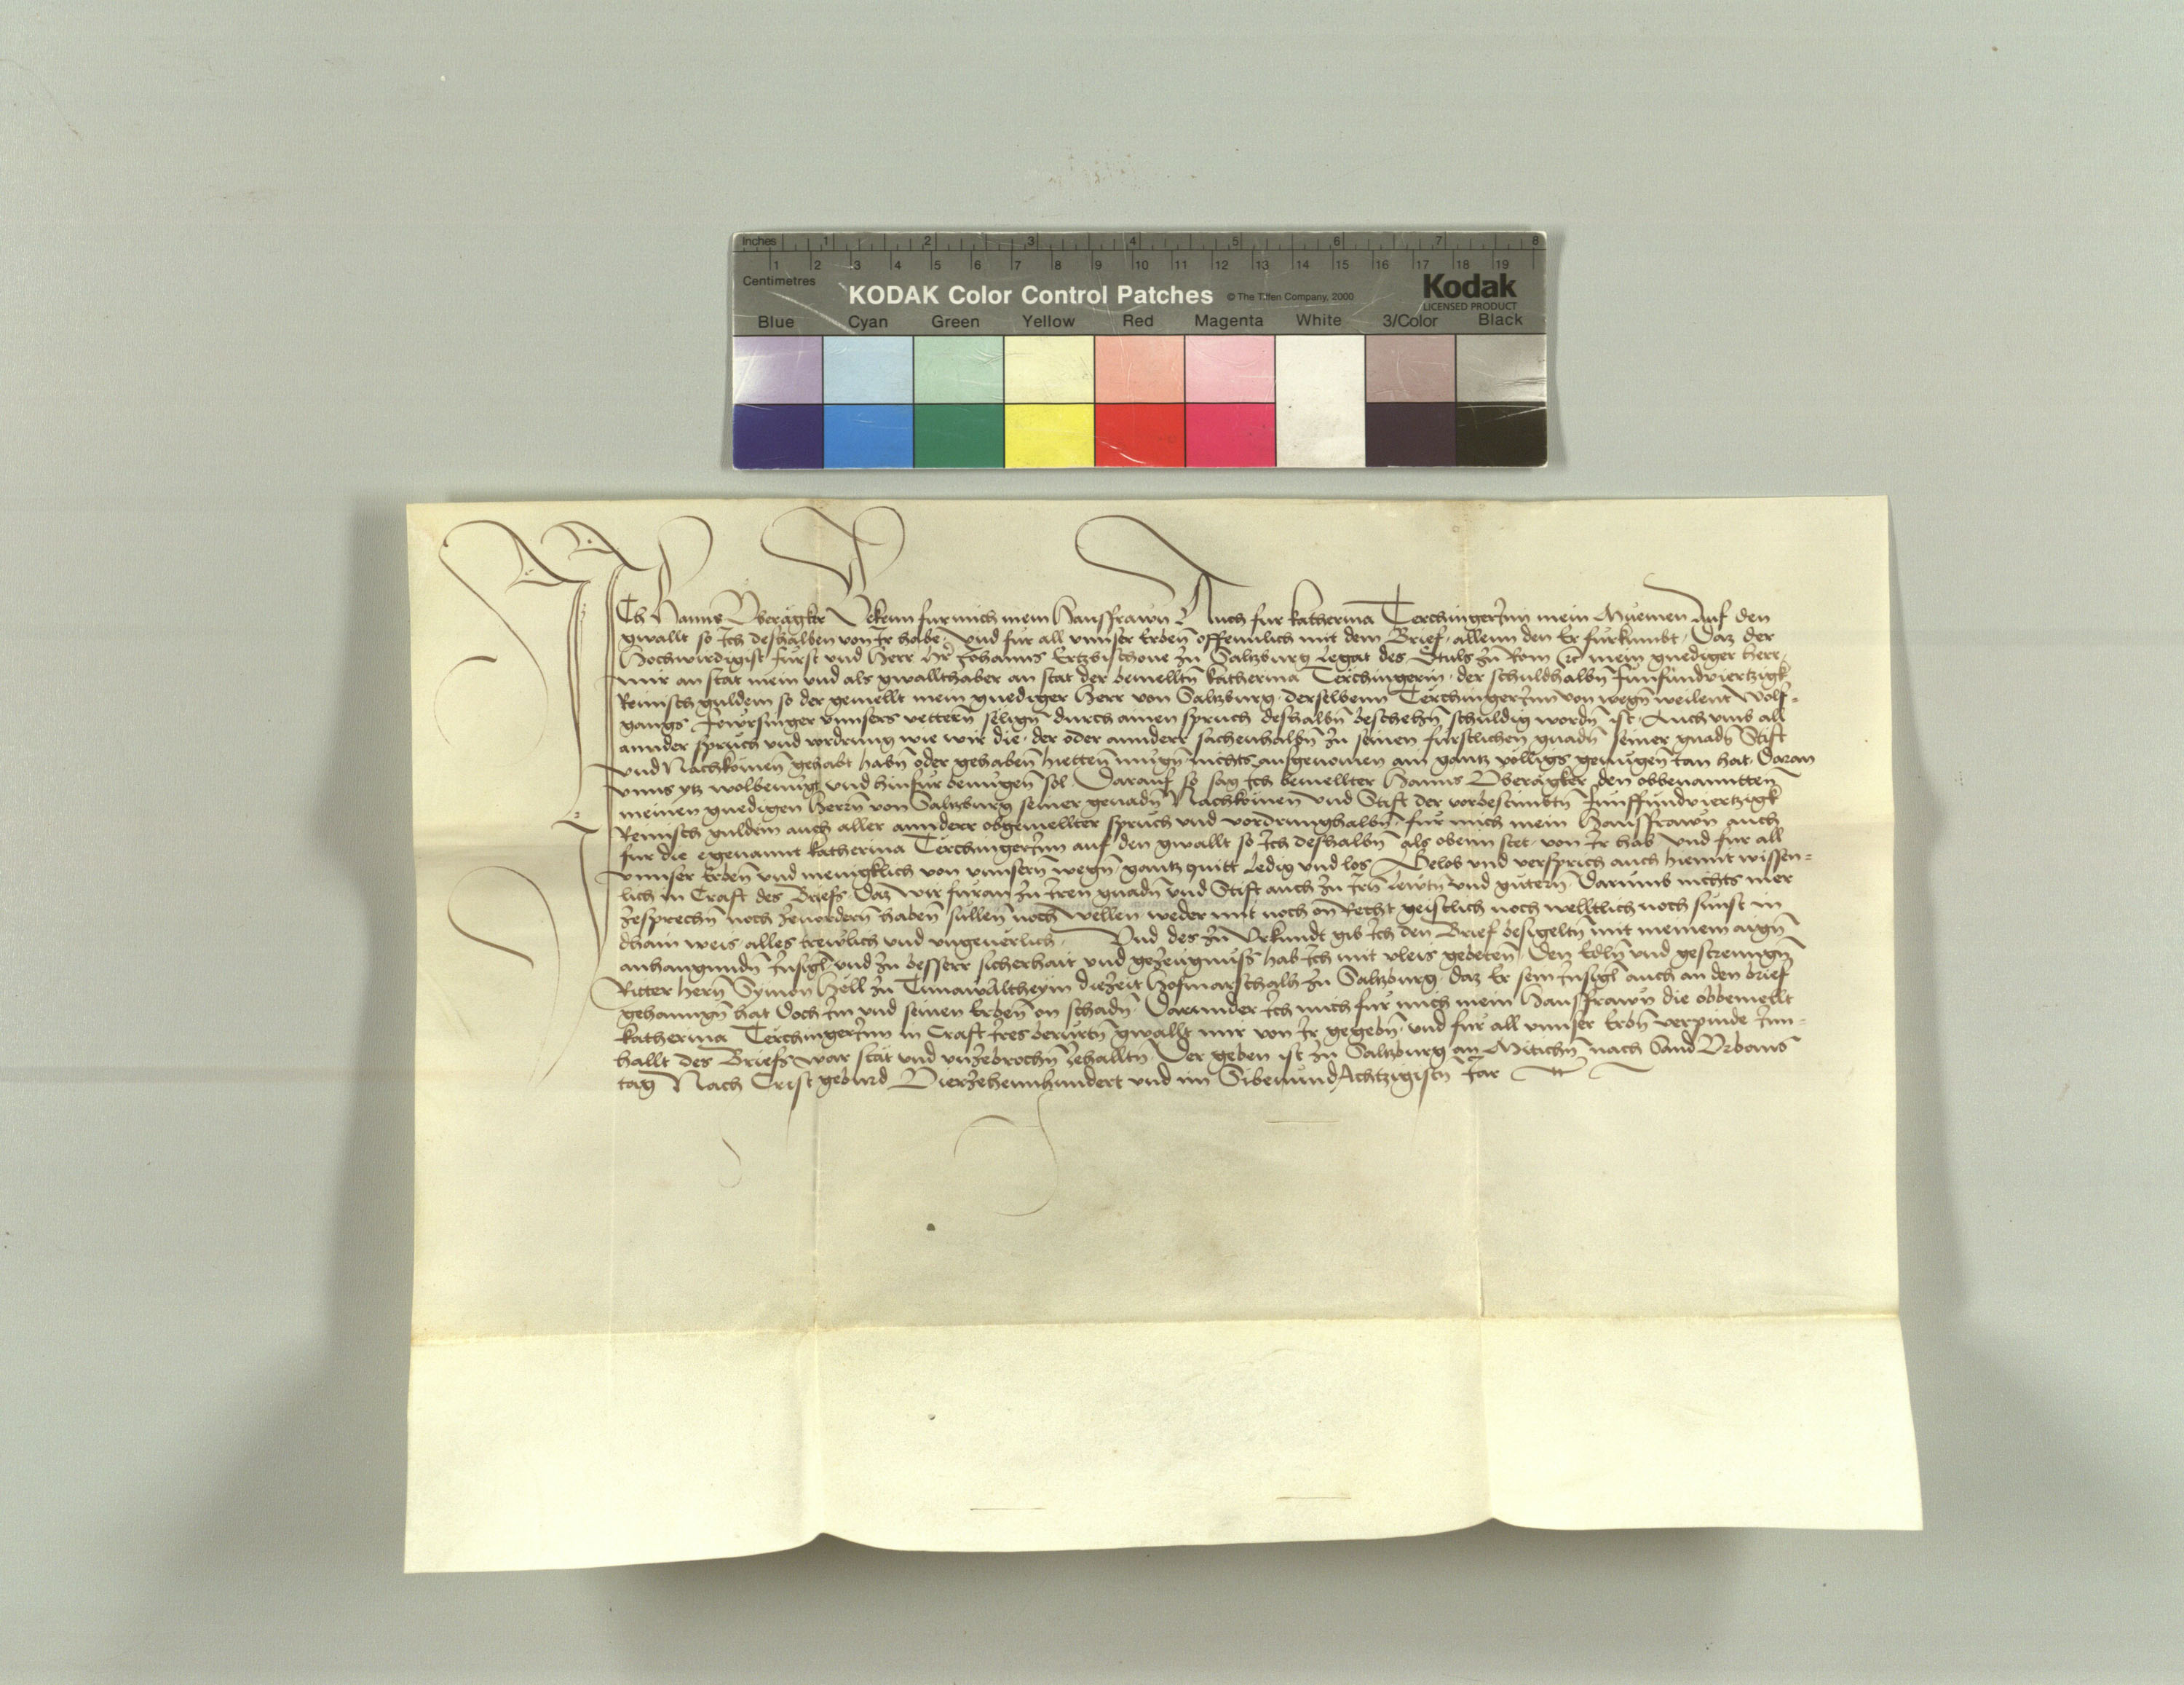 Inches 1 2 3 4 5 6 7 8
1 2 3 4 5 6 7 8 9 10 11 12 13 14 15 16 17 18 19
Centimetres
KODAK Color Control Patches © The Tiffen Company, 2000 Kodak
LICENSED PRODUCT
Blue Cyan Green Yellow Red Magenta White 3/Color Black
ICh Hanns Oberägker Bekenn fur mich mein Hausfrawn Auch fur Katherina Terchingerinn mein Muemen Auf den
gwallt so Ich deshalben von Ir habe, Und fur all unnser Erben offennlich mit dem Brief, allenn den Er furkumbt, Daz der
Hochwirdigist furst und Herr Her Johanns Ertzbischove zu Saltzburg Legat des Stuls zu Rom mein gnediger Herr,
mir an stat mein und als gwallthaber an stat der bemelltn Katherina Terchingerin, der schuldhalbn Funfundviertzigk
Reinisch guldein so der gemellt mein gnediger Herr von Saltzburg, derselbenn Terchingerinn von wegn weilent Wolf-
gangs unnsers vettern seligen durch ainen spruch deshalbn beschehn schuldig wordn ist, Auch umb all
annder spruch und vordrung wie wir die, der oder annderr sachenhalbn zu seinen furstlichen gnadn seiner gnadn Stift
und Nachkomen gehabt habn oder gehaben hietten mugn nichts ausgenomen ain gantz volligs genugen tan hat, Daran
unns ytz wolbenugt und hinfur benugen sol. Darauf so sag Ich bemellter Hanns Oberägker den obbenanntten
meinen gnedigen Herrn von Saltzburg seiner genadn Nachkomen und Stift der vorbestimbtn Funffundviertzigk
Reinisch guldein auch aller annderr obgemellter spruch und vordrunghalbn, fur mich mein Hausfrawn auch
fur die egenannt Katherina Terchingerinn auf den gwallt so Ich deshalbn als obenn stet, von Ir hab Und fur all
unnser Erben und menigklich von unnsern wegn, gantz quitt Ledig und los, Gelob und versprich auch hiemit wissen-
lich in Craft des Briefs, Daz wir furan zu Iren gnadn und Stift auch zu Irn Lewtn und gutern, Darumb nichts mer
zesprechn noch zevordern haben sullen noch wellen weder mit noch on Recht geistlich noch welltlich noch sunst in
dhain weis alles trewlich und ungeverlich. Und des zu Urkundt gib Ich den Brief besigeltn mit meinem aign
anhangundn Insigl, Und zu besserr sicherhait und gezeugnuss hab Ich mit vleis gebeten, Den Edln und gestrenngn
Ritter Hern Symon Hell zu diezeit Hofmarschalh zu Saltzburg, daz Er sein Insigl auch an den brief
gehanngn hat Doch Im und seinen Erben on schadn, Darunder Ich mich fur mich mein Hausfrawn die obbemellt
Katherina Terchingerinn in Craft Ires berurtn gwallt mir von Ir gegebn, und fur all unnser Erbn verpinde Inn-
hallt des Briefs war stat und unzebrochn zehalltn, Der geben ist zu Saltzburg an Mitichn nach Sand Urbans
tag Nach Crist geburd Vierzehennhundert und im Sibenundachtzigistn Jar